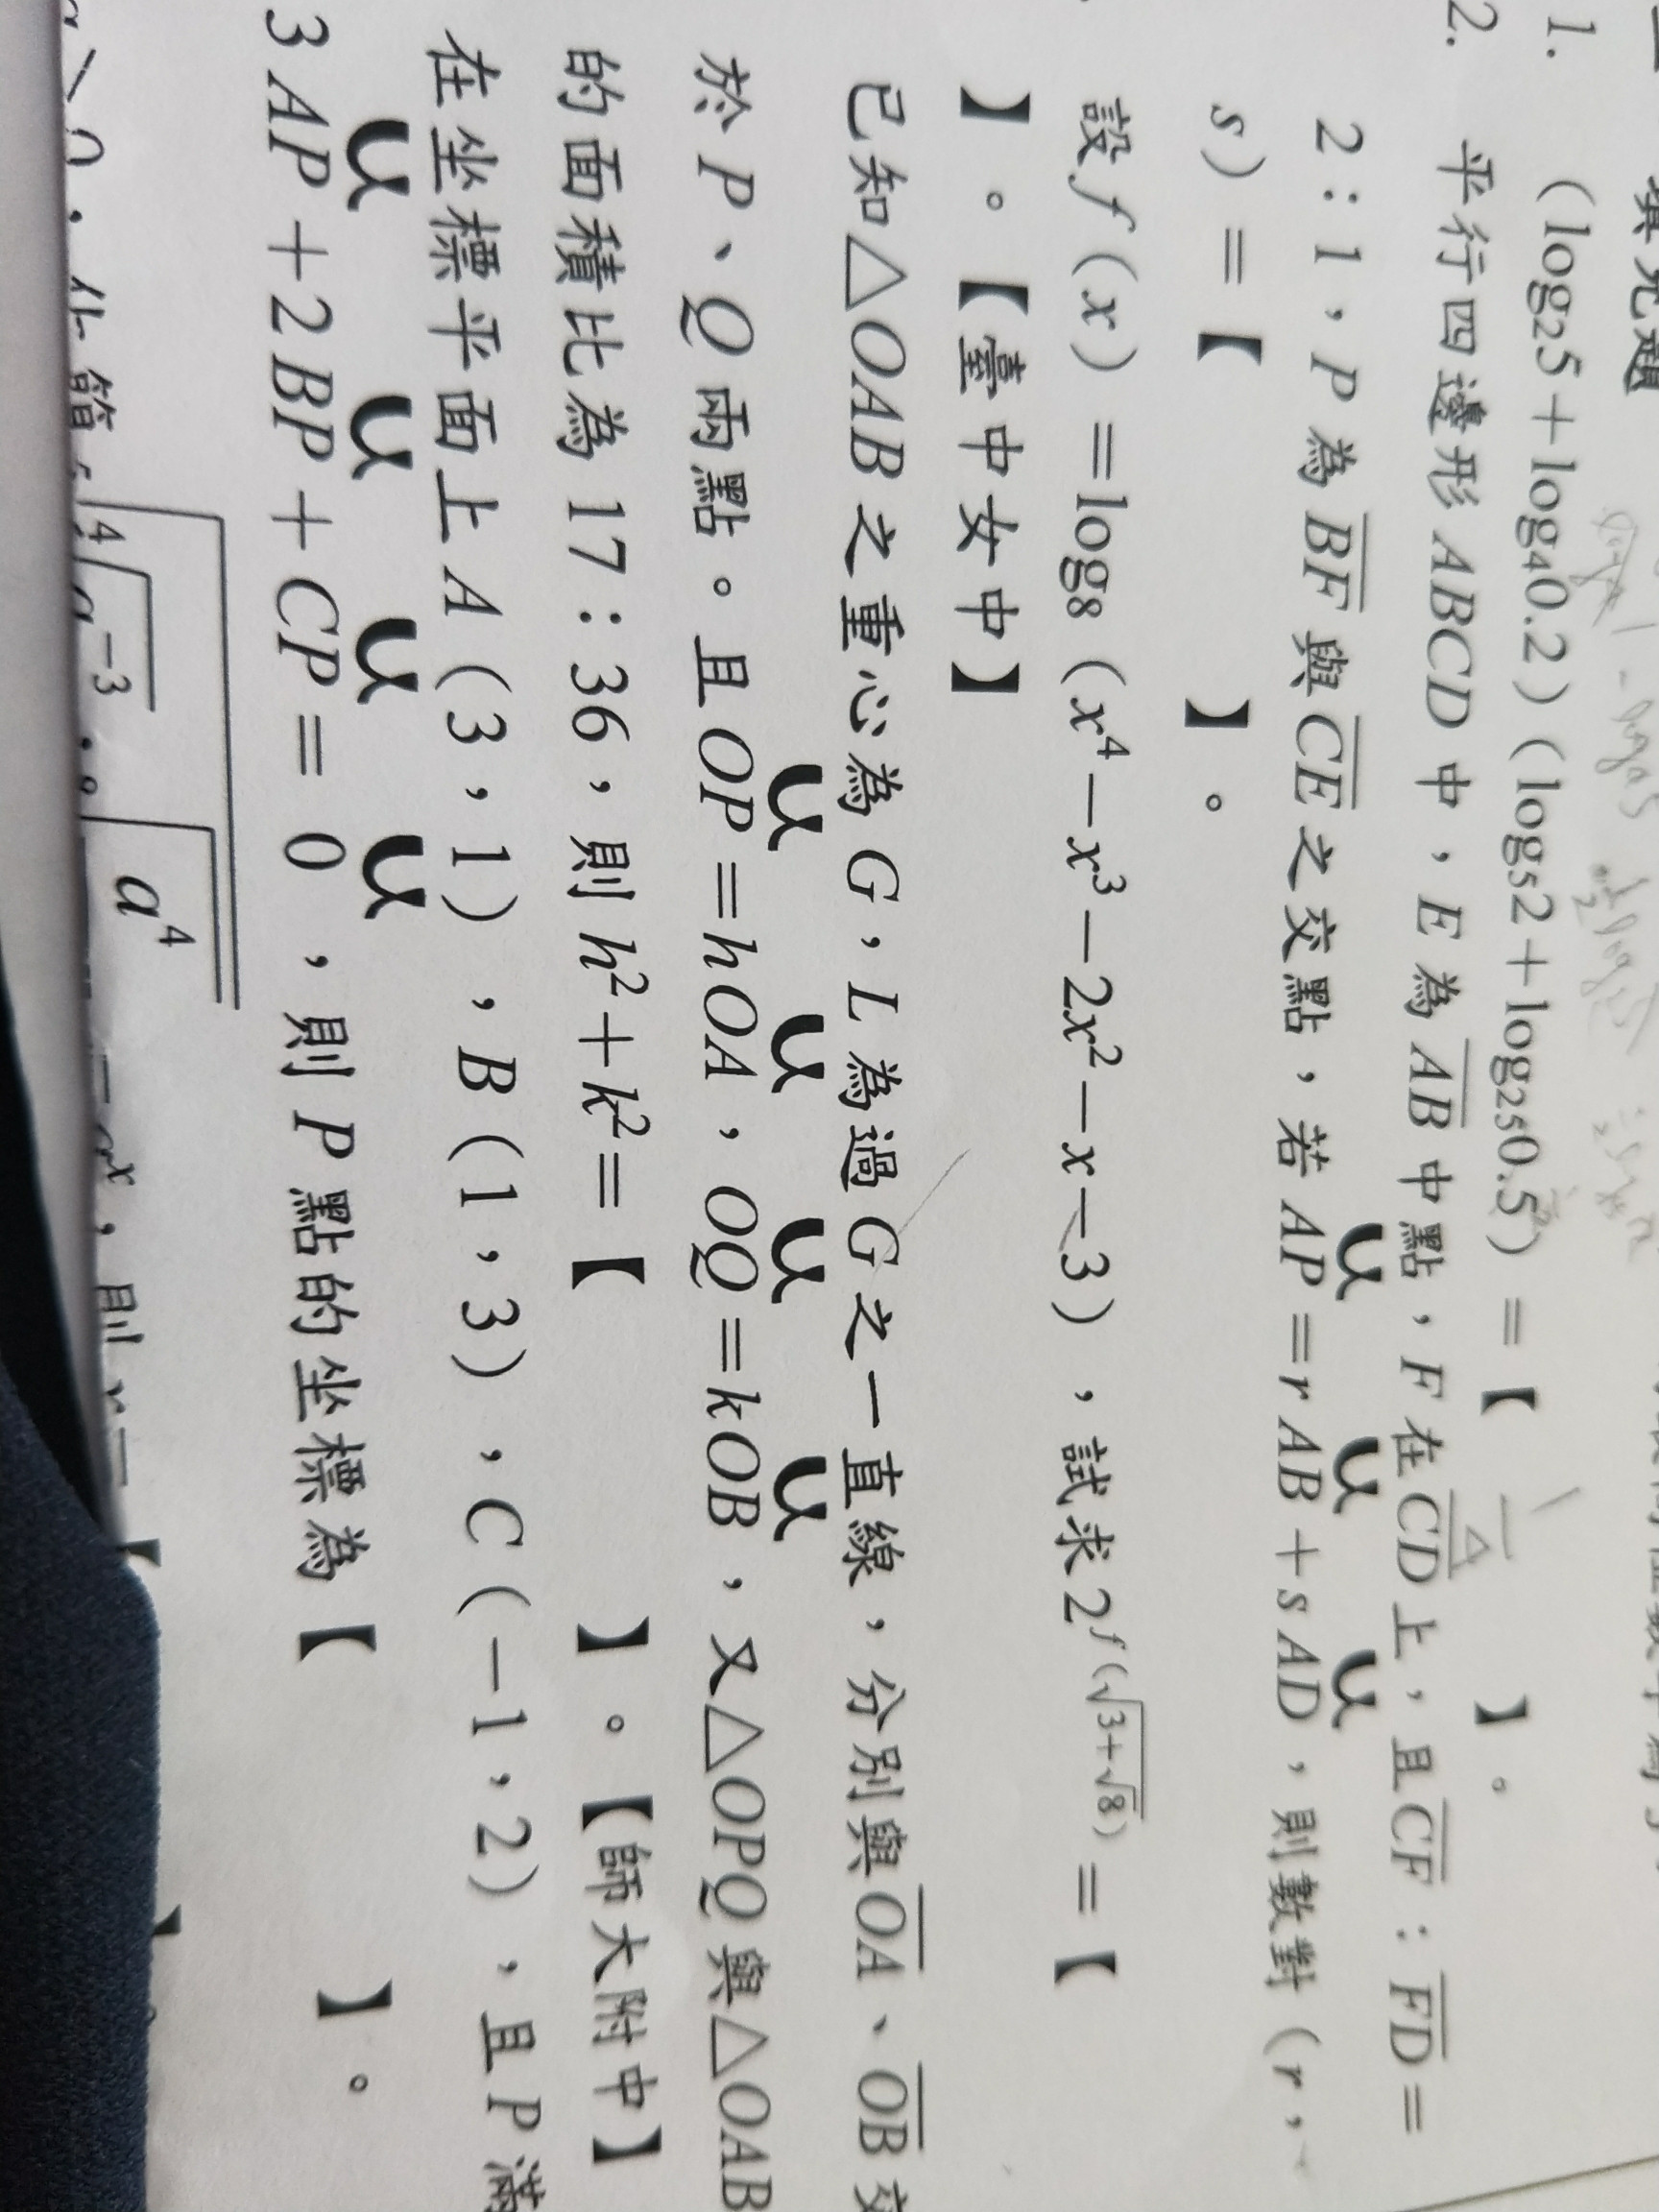 二 填充題
1. (log₂5+log₄0.2)(log₅2+log₂₅0.5)=【 】。
2. 平行四邊形 ABCD 中,E 為 AB 中點,F 在 CD 上,且 CF:FD=
2:1,P 為 BF 與 CE 之交點,若 AP=rAB+sAD,則數對(r,
s)=【 】。
設 f(x)=log₈(x⁴-x³-2x²-x-3),試求 2^f(√(3+√8))=【
】。【臺中女中】
已知△OAB 之重心為 G,L 為過 G 之一直線,分別與 OA、OB 交
於 P、Q 兩點。且 OP=hOA,OQ=kOB,又△OPQ 與△OAB
的面積比為 17:36,則 h²+k²=【 】。【師大附中】
在坐標平面上 A(3,1),B(1,3),C(-1,2),且 P 滿
3AP+2BP+CP=0,則 P 點的坐標為【 】。